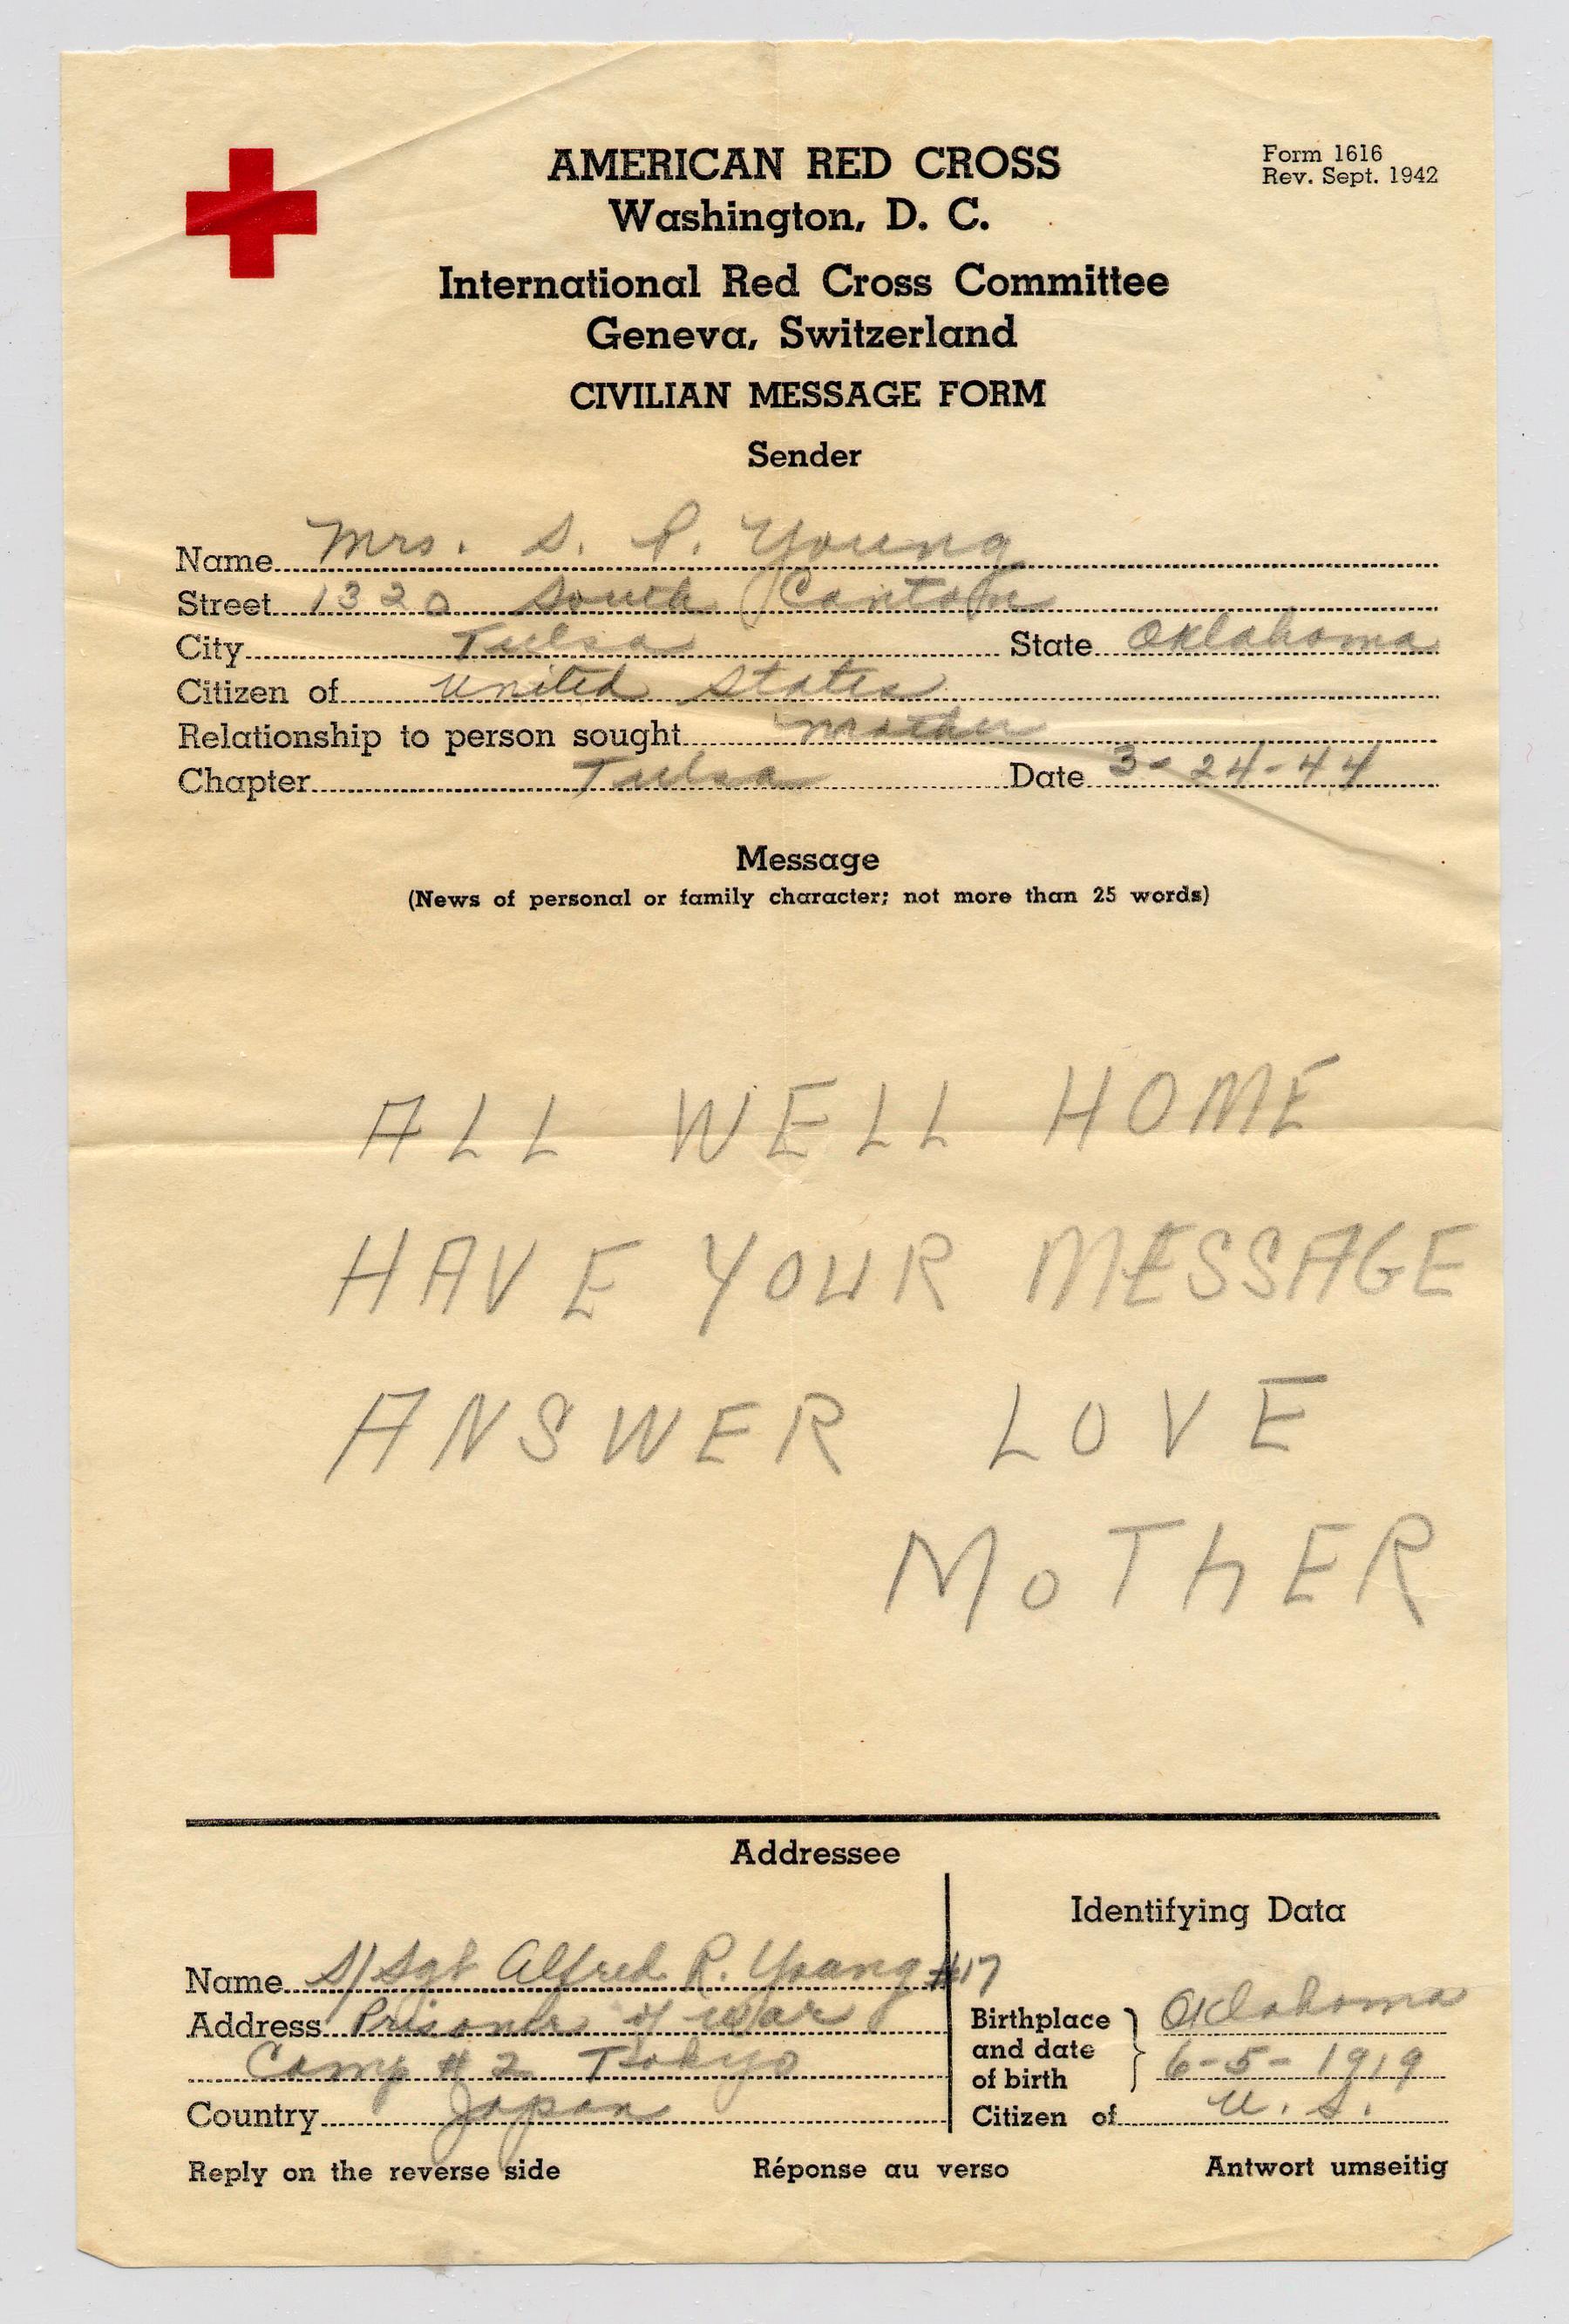 AMERICAN RED CROSS
Form 1616
Washington, D. C.
Rev. Sept. 1942
International Red Cross Committee
Geneva, Switzerland
CIVILIAN MESSAGE FORM
Sender
Name Mrs. S. P. Young
Street 1320 South Canton
City Tulsa State Oklahoma
Citizen of United States
Relationship to person sought mother
Chapter Tulsa Date 3-24-44
Message
(News of personal or family character; not more than 25 words)
ALL WELL HOME
HAVE YOUR MESSAGE
ANSWER LOVE
MOTHER
Addressee
Identifying Data
Name S/Sgt Alfred R. Young #17
Address Prisoner of war
Camp # 2 Tokyo
Country Japan
Birthplace and date of birth } Oklahoma
6-5-1919
Citizen of U. S.
Reply on the reverse side Réponse au verso Antwort umseitig